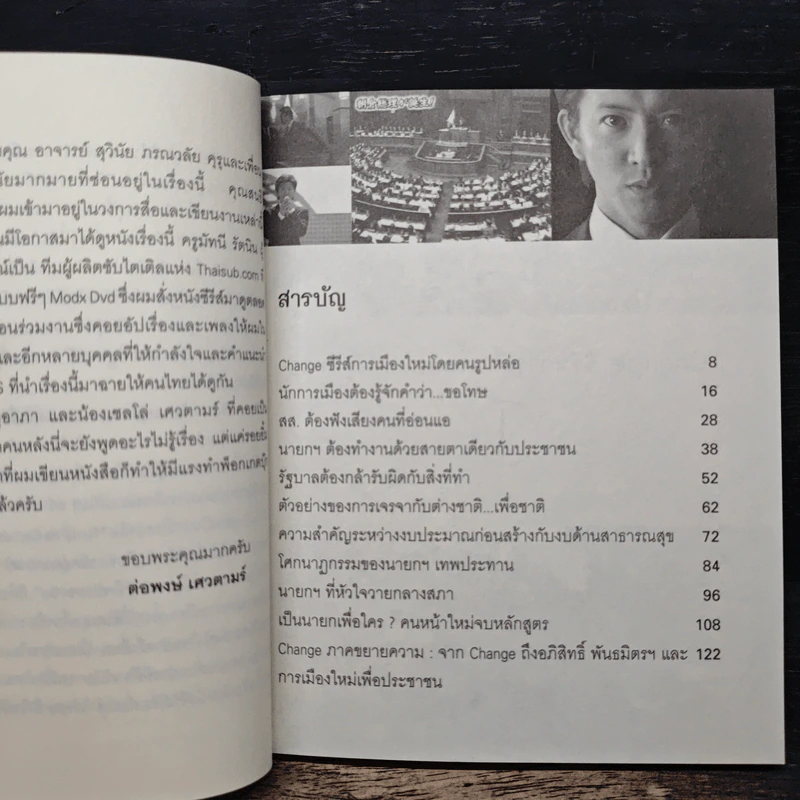 คุณ อาจารย์ สุวินัย ภรณวลัย คุรุและเพื่อน
ัยมากมายที่ซ่อนอยู่ในเรื่องนี้ คุณสนธิ
ผมเข้ามาอยู่ในวงการสื่อและเขียนงานเหล่านี้
นมีโอกาสมาได้ดูหนังเรื่องนี้ ครูมัทนี รัตนิน
ณ์เป็น ทีมผู้ผลิตซับไตเติลแห่ง Thaisub.com ที่
บบฟรีๆ Modx Dvd ซึ่งผมสั่งหนังซีรีส์มาดูตลอด
อนร่วมงานซึ่งคอยอัปเรื่องและเพลงให้ผมใน
และอีกหลายบุคคลที่ให้กำลังใจและคำแนะนำ
S ที่นำเรื่องนี้มาฉายให้คนไทยได้ดูกัน
อาภา และน้องเซลโล่ เศวตามร์ ที่คอยเป็น
คนหลังนี่จะยังพูดอะไรไม่รู้เรื่อง แต่แค่รอยยิ้ม
ที่ผมเขียนหนังสือก็ทำให้มีแรงทำพ็อกเกตบุ๊ก
ล้วครับ
ขอบพระคุณมากครับ
ต่อพงษ์ เศวตามร์
สารบัญ
Change ซีรีส์การเมืองใหม่โดยคนรูปหล่อ 8
นักการเมืองต้องรู้จักคำว่า...ขอโทษ 16
สส. ต้องฟังเสียงคนที่อ่อนแอ 28
นายกฯ ต้องทำงานด้วยสายตาเดียวกับประชาชน 38
รัฐบาลต้องกล้ารับผิดกับสิ่งที่ทำ 52
ตัวอย่างของการเจรจากับต่างชาติ...เพื่อชาติ 62
ความสำคัญระหว่างงบประมาณก่อนสร้างกับงบด้านสาธารณสุข 72
โศกนาฏกรรมของนายกฯ เทพประทาน 84
นายกฯ ที่หัวใจวายกลางสภา 96
เป็นนายกเพื่อใคร ? คนหน้าใหม่จบหลักสูตร 108
Change ภาคขยายความ : จาก Change ถึงอภิสิทธิ์ พันธมิตรฯ และ 122
การเมืองใหม่เพื่อประชาชน